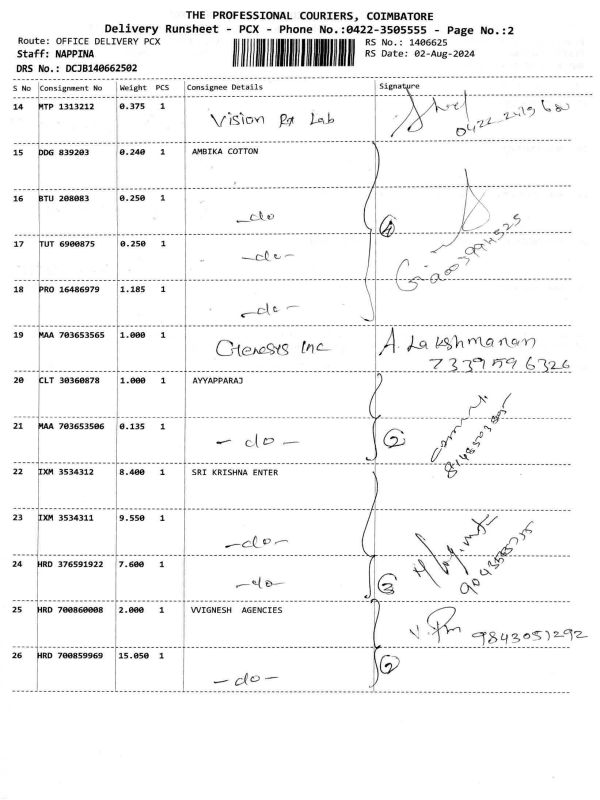 THE PROFESSIONAL COURIERS, COIMBATORE
Delivery Runsheet - PCX - Phone No.:0422-3505555 - Page No.:2
Route: OFFICE DELIVERY PCX RS No.: 1406625
Staff: NAPPINA RS Date: 02-Aug-2024
DRS No.: DCJB140662502
S No Consignment No Weight PCS Consignee Details Signature
14 MTP 1313212 0.375 1 Vision Rx Lab
15 DDG 839203 0.240 1 AMBIKA COTTON
16 BTU 208083 0.250 1 -do
17 TUT 6900875 0.250 1 -do- 4
18 PRO 16486979 1.185 1 -do-
19 MAA 703653565 1.000 1 Genesys Inc A. Lakshmanan
7339596326
20 CLT 30360878 1.000 1 AYYAPPARAJ
21 MAA 703653506 0.135 1 -do- 2
22 IXM 3534312 8.400 1 SRI KRISHNA ENTER
23 IXM 3534311 9.550 1 -do-
24 HRD 376591922 7.600 1 -do- 3
25 HRD 700860008 2.000 1 VVIGNESH AGENCIES 9843051292
26 HRD 700859969 15.050 1 -do- 2